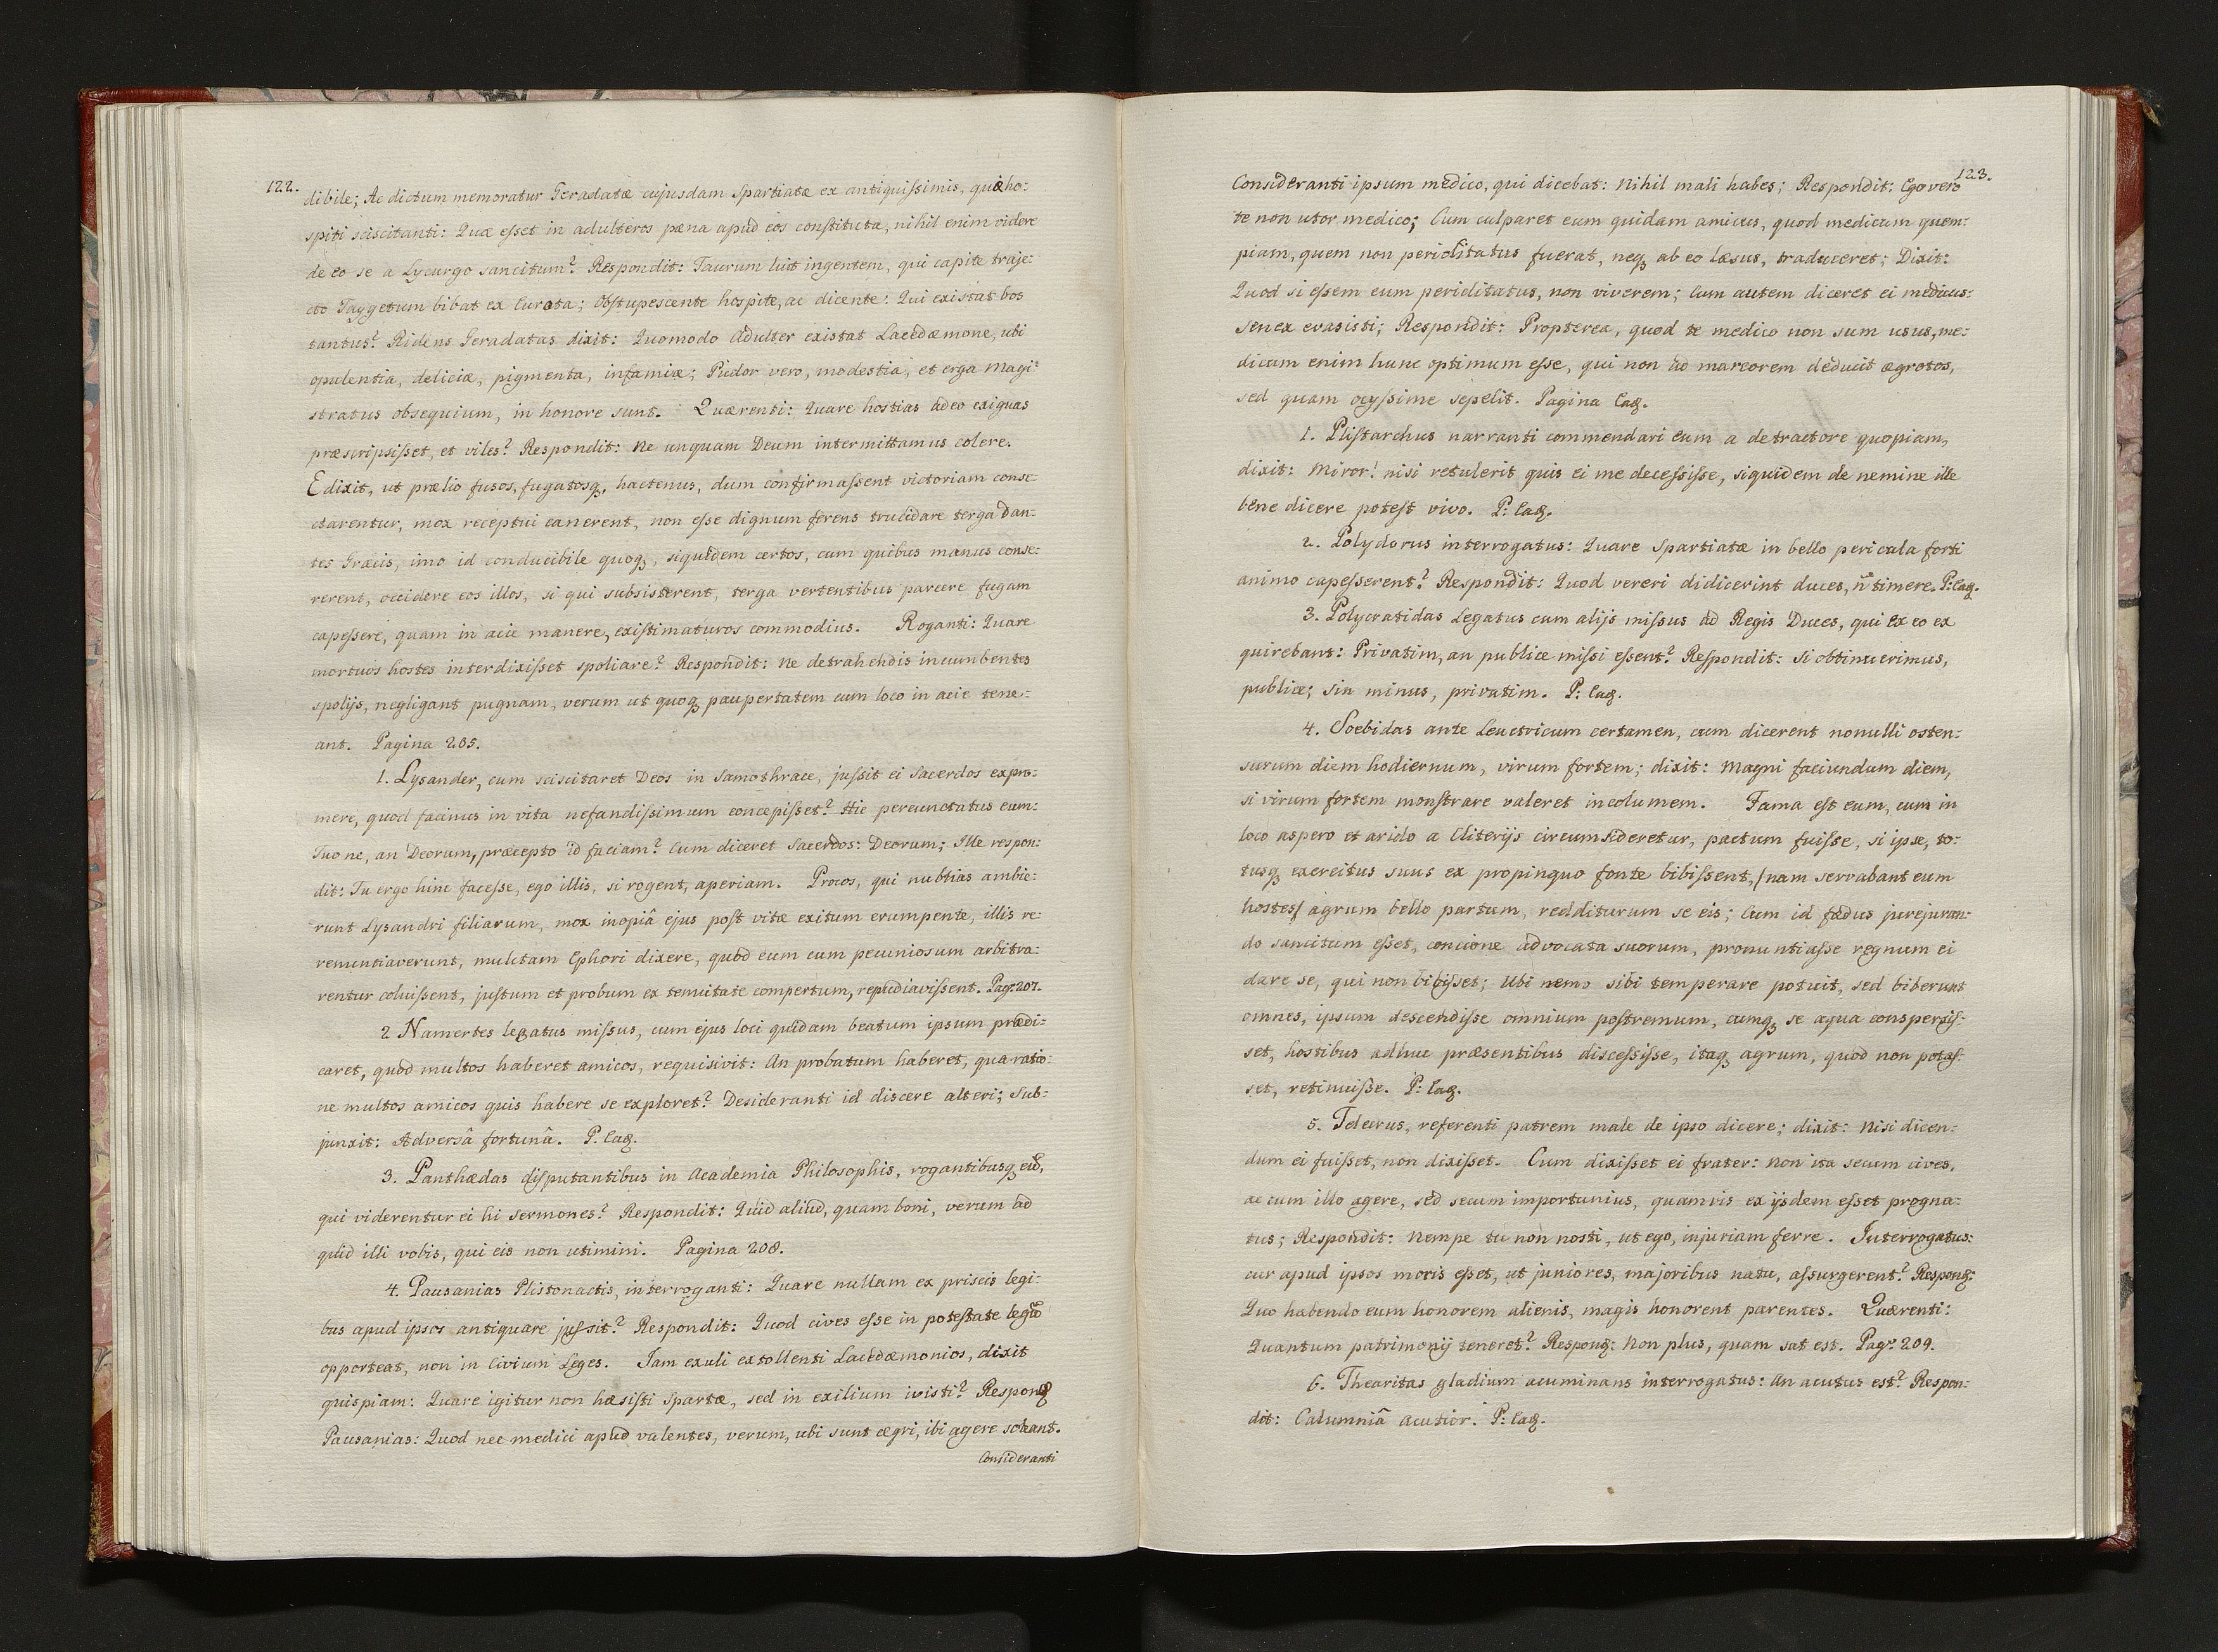 122.
dibile; Ac dictum memoratur Geradatæ cujusdam Spartiatæ ex antiquissimis, qui ho:
spiti sciscitanti: Quæ esset in adulteros pæna apud eos constituta, nihil enim videre
de eo se a Lycurgo sancitum? Respondit: Taurum luit ingentem, qui capite traje:
cto Taygetum bibat ex Eurota; Obstupescente hospite, ac dicente: Qui existat bos
tantus? Ridens Geradatas dixit: Quomodo Adulter existat Lacedæmone, ubi
opulentia, deliciæ, pigmenta, infamiæ; Pudor vero, modestia, et erga Magi:
stratus obsequium, in honore sunt. Quærenti: Quare hostias adeo exiguas
præscripsisset, et viles? Respondit: Ne unquam Deum intermittamus colere.
Edixit, ut prælio fusos, fugatosq, hactenus, dum confirmassent victoriam conse:
ctarentur, mox receptui canerent, non esse dignum ferens trucidare terga dan:
tes Græcis, imo id conducibile quoq, siquidem certos, cum quibus manus conse:
rerent, occidere eos illos, si qui subsisterent, terga vertentibus parcere fugam
capessere, quam in acie manere, existimaturos commodius. Roganti: Quare
mortuos hostes interdixisset spoliare? Respondit: Ne detrahendis incumbentes
spolijs, negligant pugnam, verum ut quoq paupertatem cum loco in acie tene:
ant. Pagina 205.
1. Lysander, cum sciscitaret Deos in Samothrace, jussit ei Sacerdos expro:
mere, quod facinus in vita nefandissimum concepisset? Hic percunctatus eum:
Tuo ne, an Deorum, præcepto id faciam? Cum diceret Sacerdos: Deorum; Ille respon:
dit: Tu ergo hinc facesse, ego illis, si rogent, aperiam. Procos, qui nubtias ambie:
runt Lysandri filiarum, mox inopiâ ejus post vitæ exitum erumpente, illis re:
renuntiaverunt, mulctam Ephori dixere, quòd eum cum pecuniosum arbitra:
rentur coluissent, justum et probum ex tenuitate compertum, repudiavissent. Pag: 207.
2 Namertes legatus missus, cum ejus loci quidam beatum ipsum prædi:
caret, quòd multos haberet amicos, requisivit: An probatum haberet, qua ratio:
ne multos amicos quis habere se exploret? Desideranti id discere alteri; Sub:
junxit: Adversâ fortunâ. P. Eaq.
3. Panthædas disputantibus in Academia Philosophis, rogantibusq eũ,
qui viderentur ei hi sermones? Respondit: Quid aliud, quam boni, verum ad
quid illi vobis, qui eis non utimini. Pagina 208.
4. Pausanias Plistonactis, interroganti: Quare nullam ex priscis legi:
bus apud ipsos antiquare jus sit? Respondit: Quod cives esse in potestate legũ
opporteat, non in Civium Leges. Jam exuli extollenti Lacedæmonios, dixit
quispiam: Quare igitur non hæsisti Spartæ, sed in exilium ivisti? Respond
Pausanias: Quod nec medici apud valentes, verum, ubi sunt ægri, ibi agere soleant.
Consideranti
123.
Consideranti ipsum medico, qui dicebat: Nihil mali habes; Respondit: Ego vero
te non utor medico; Cum culparet eum quidam amicus, quod medicum quem:
piam, quem non periclitatus fuerat, neq ab eo læsus, traduceret; Dixit:
Quod si essem eum periclitatus, non viverem; Cum autem diceret ei medicus:
Senex evasisti; Respondit: Propterea, quod te medico non sum usus, me:
dicum enim hunc optimum esse, qui non ad marcorem deducit ægrotos,
sed quam ocyssime sepelit. Pagina Eaq.
1. Plistarchus narranti commendari eum a detractore quopiam,
dixit: Miror! nisi retulerit quis ei me decessisse, siquidem de nemine ille
bene dicere potest vivo. P: Eaq.
2. Polydorus interrogatus: Quare Spartiatæ in bello pericula forti
animo capesserent? Respondit: Quod vereri didicerint duces, ñ timere. P: Eaq.
3. Polycratidas Legatus cum alijs missus ad Regis Duces, qui ex eo ex
quirebant: Privatim, an publice missi essent? Respondit: Si obtinuerimus,
publice; sin minus, privatim. P: Eaq.
4. Soebidas ante Leuctricum certamen, cum dicerent nonulli osten:
surum diem hodiernum, virum fortem; dixit: Magni faciundum diem,
si virum fortem monstrare valeret incolumem. Fama est eum, cum in
loco aspero et arido a Cliterijs circumsideretur, pactum fuisse, si ipse, to:
tusq exercitus suus ex propinquo fonte bibissent, /nam servabant eum
hostes/ agrum bello partum, redditurum se eis; Cum id fædus jurejuran:
do sancitum esset, concione advocata suorum, pronuntiasse regnum ei
dare se, qui non bibisset; Ubi nemo sibi temperare potuit, sed biberunt
omnes, ipsum descendisse omnium postremum, cumq se aqua conspersis:
set, hostibus adhuc præsentibus discessisse, itaq agrum, quod non potas:
set, retinuisse. P: Eaq.
5. Telecrus, referenti patrem male de ipso dicere; dixit: Nisi dicen:
dum ei fuisset, non dixisset. Cum dixisset ei frater: Non ita secum cives,
ac cum illo agere, sed secum importunius, quamvis ex ijsdem esset progna:
tus; Respondit: Nempe tu non nosti, ut ego, injuriam ferre. Interrogatus:
cur apud ipsos moris esset, ut juniores, majoribus natu, assurgerent? Respond:
Quo habendo eum honorem alienis, magis honorent parentes. Quærenti:
Quantum patrimonij teneret? Respond: Non plus, quam sat est. Pag: 209.
6. Thearitas gladium acuminans interrogatus: An acutus est? Respon:
dit: Calumniâ acutior. P: Eaq.